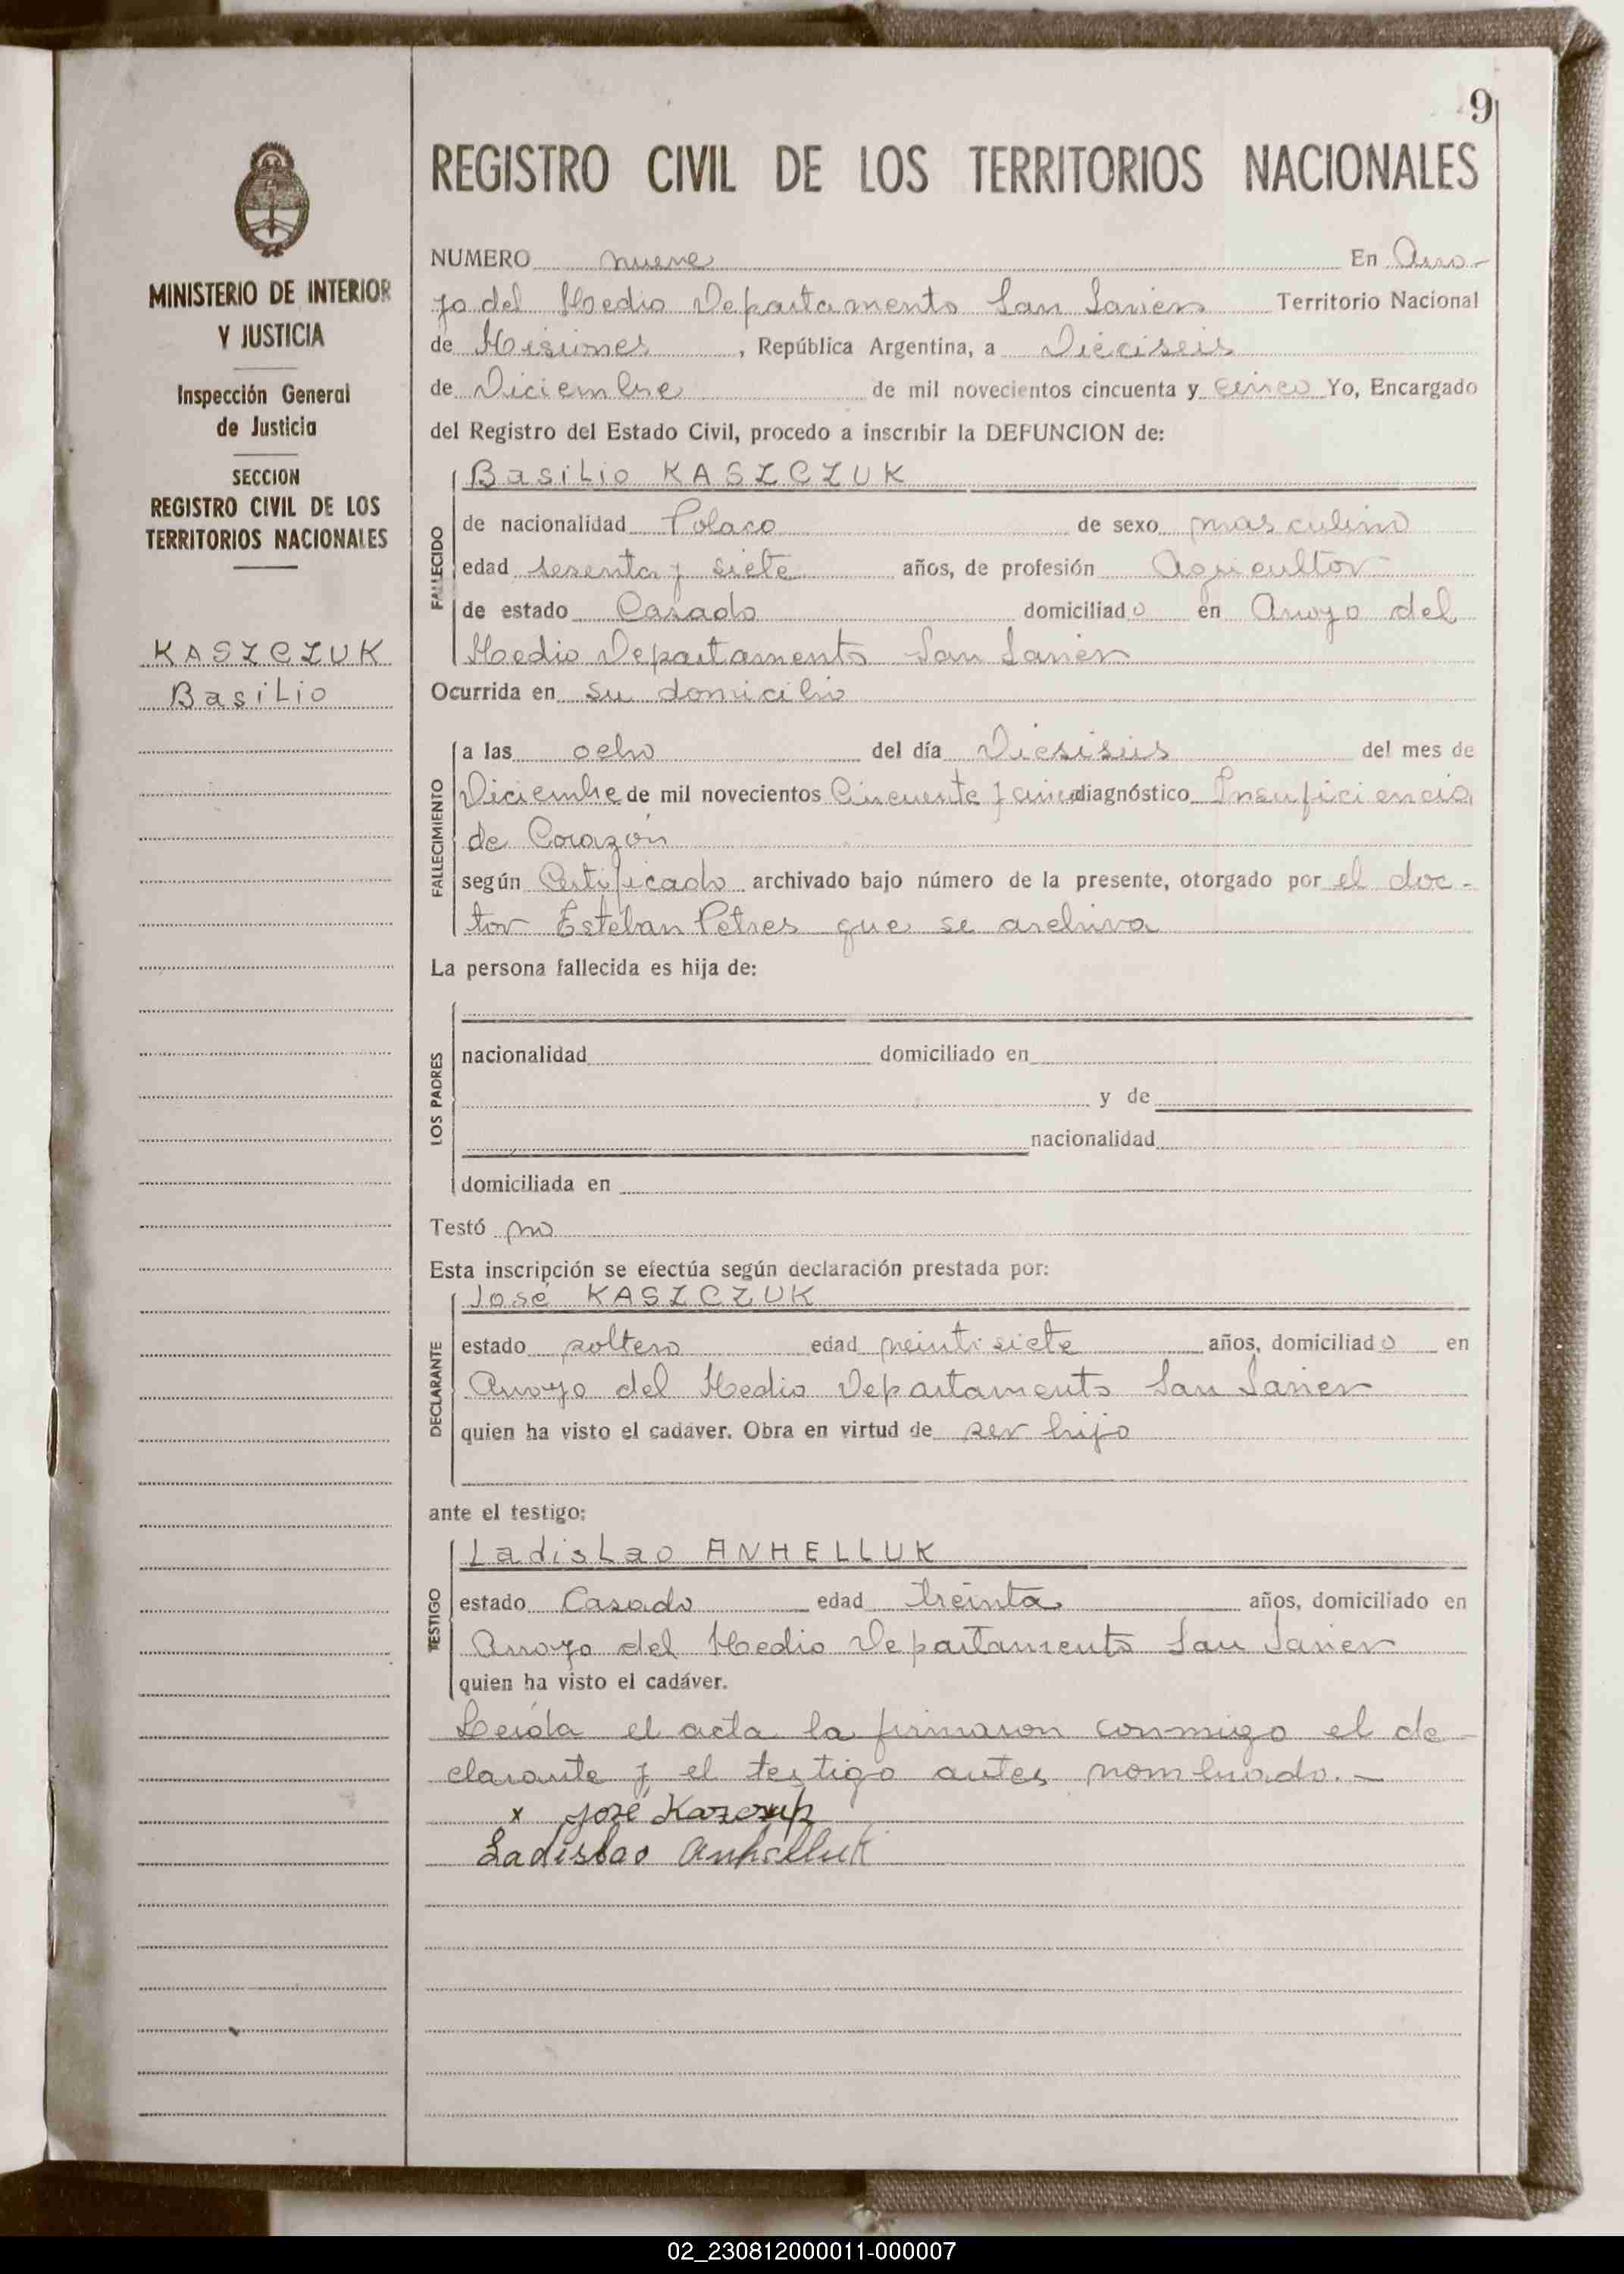 9
MINISTERIO DE INTERIOR
Y JUSTICIA
Inspección General
de Justicia
SECCION
REGISTRO CIVIL DE LOS
TERRITORIOS NACIONALES
KASZCZUK
Basilio
REGISTRO CIVIL DE LOS TERRITORIOS NACIONALES
NUMERO nueve En Arro-
yo del Medio Departamento San Javier Territorio Nacional
de Misiones, República Argentina, a Dieciseis
de Diciembre de mil novecientos cincuenta y cinco Yo, Encargado
del Registro del Estado Civil, procedo a inscribir la DEFUNCION de:
Basilio KASZCZUK
FALLECIDO
de nacionalidad Polaco de sexo masculino
edad sesenta y siete años, de profesión Agricultor
de estado Casado domiciliado en Arroyo del
Medio Departamento San Javier
Ocurrida en su domicilio
FALLECIMIENTO
a las ocho del día Diesiseis del mes de
Diciembre de mil novecientos Cincuenta y cinco diagnóstico Insuficiencia
de Corazón
según Certificado archivado bajo número de la presente, otorgado por el doc-
tor Esteban Petres que se archiva
La persona fallecida es hija de:
LOS PADRES
nacionalidad domiciliado en
y de
nacionalidad
domiciliada en
Testó no
Esta inscripción se efectúa según declaración prestada por:
José KASZCZUK
DECLARANTE
estado soltero edad veintisiete años, domiciliado en
Arroyo del Medio Departamento San Javier
quien ha visto el cadáver. Obra en virtud de ser hijo
ante el testigo:
Ladislao ANHELLUK
TESTIGO
estado Casado edad treinta años, domiciliado en
Arroyo del Medio Departamento San Javier
quien ha visto el cadáver.
Leída el acta la firmaron conmigo el de-
clarante y el testigo antes nombrado.-
x José
Ladislao Anhelluk
02_230812000011-000007